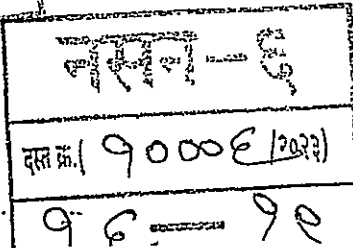 नसन--६
दस्त क्र.( १०००६ /२०२२)
१६ — १९